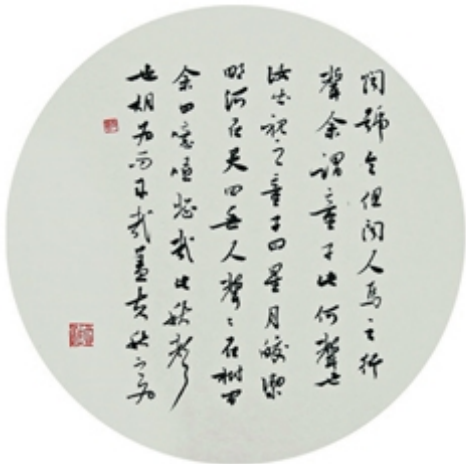 闻號令但闻人馬之行
聲余謂童子此何聲也
汝出視之童子曰星月皎潔
明河在天四無人聲〻在樹間
余曰噫嘻悲哉此秋聲
也胡为而来哉蓋夫秋之为